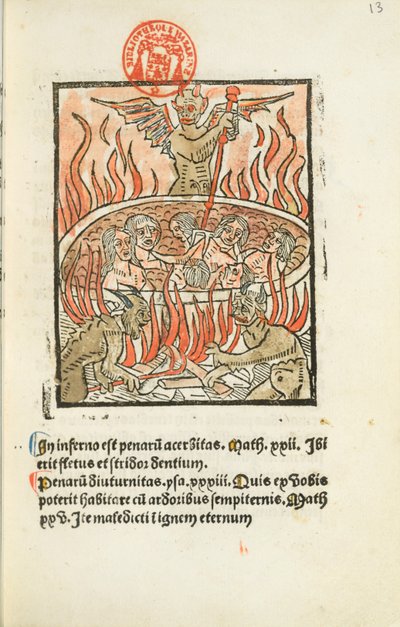 13
BIBLIOTHEQUE MAZARINE
In inferno est penarū acerbitas. Math. xxii. Ibi
erit fletus et stridor dentium.
Penarū diuturnitas. ysa. xxxiii. Quis ex vobis
poterit habitare cū ardoribus sempiternis. Math
xxv. Ite maledicti ī ignem eternum